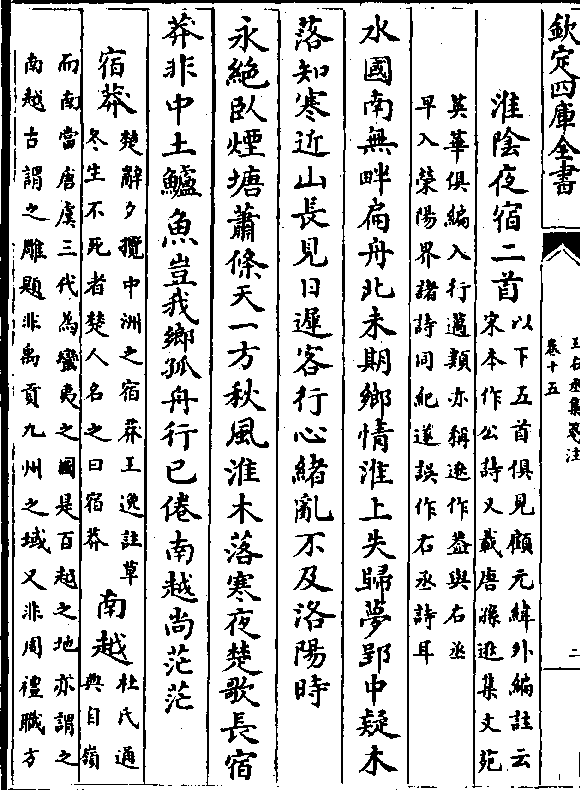 欽定四庫全書
王右丞集箋注
卷十五
二
淮陰夜宿二首
以下五首俱見顧元緯外編註云
宋本作公詩又載唐孫逖集文苑
英華俱編入行邁類亦稱逖作葢與右丞
早入滎陽界諸詩同紀遂誤作右丞詩耳
水國南無畔扁舟北未期鄉情淮上失歸夢郢中疑木
落知寒近山長見日遲客行心緒亂不及洛陽時
永絶卧煙塘蕭條天一方秋風淮木落寒夜楚歌長宿
莽非中土鱸魚豈我鄉孤舟行已倦南越尚茫茫
宿莽
楚辭夕攬中洲之宿莽王逸註草
冬生不死者楚人名之曰宿莽
南越
杜氏通
典自嶺
而南當唐虞三代為蠻夷之國是百越之地亦謂之
南越古謂之雕題非禹貢九州之域又非周禮職方